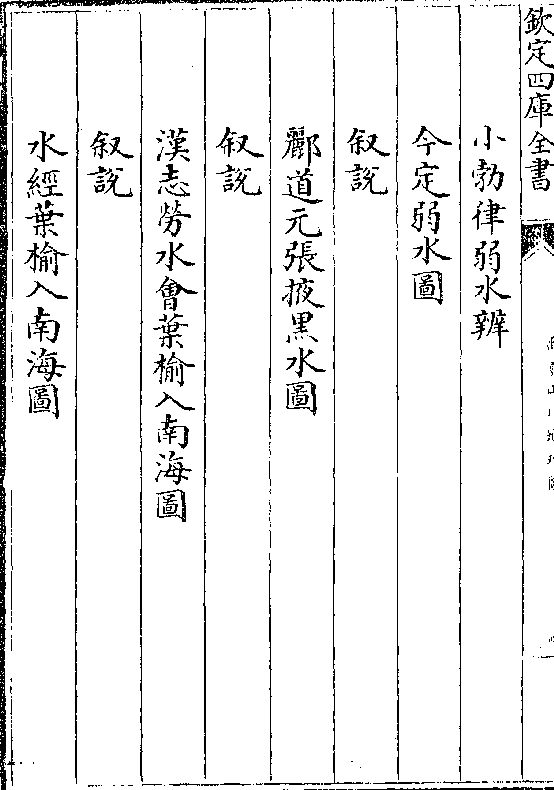 欽定四庫全書
小勃律弱水辨
今定弱水圖
叙說
酈道元張掖黑水圖
叙說
漢志勞水會葉榆入南海圖
叙說
水經葉榆入南海圖